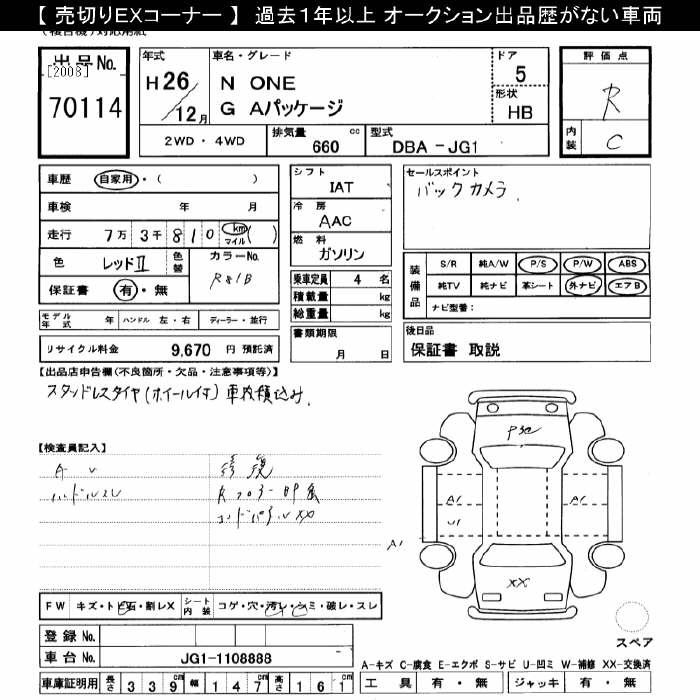 【 売切りEXコーナー 】 過去1年以上 オークション出品歴がない車両
出品No. [2008] 70114
年式 H26/12月
車名・グレード N ONE
G Aパッケージ
ドア 5
形状 HB
評価点 R
内装 C
2WD・4WD 排気量 660 cc 型式 DBA -JG1
車歴 自家用・( )
車検 年 月
走行 7万 3千 8 1 0 km マイル ( )
色 レッドⅡ 色替 カラーNo. R81B
保証書 有・無
モデル年式 年 ハンドル 左・右 ディーラー・並行
リサイクル料金 9,670 円 預託済
シフト IAT
冷房 AAC
燃料 ガソリン
乗車定員 4 名
積載量 kg
総重量 kg
書類期限 月 日
セールスポイント
バックカメラ
装備品 S/R 純A/W P/S P/W ABS
純TV 純ナビ 革シート 外ナビ エアB
ナビ型番:
後日品
保証書 取説
【出品店申告欄(不良箇所・欠品・注意事項等)】
スタッドレスタイヤ(ホイール付)車内積込み.
【検査員記入】
A U
ハンドルスレ
修復
Rフロアー凹歪
エンドパネルXX
P3e
A1
U1
A1
A1
XX
スペア
FW キズ・トビ石・割レX シート内装 コゲ・穴・汚レ・シミ・破レ・スレ
登録 No.
車台 No. JG1-1108888
車庫証明用 長さ 3 3 9 cm 幅 1 4 7 cm 高さ 1 6 1 cm
A-キズ C-腐食 E-エクボ S-サビ U-凹ミ W-補修 XX-交換済
工具 有・無 ジャッキ 有・無